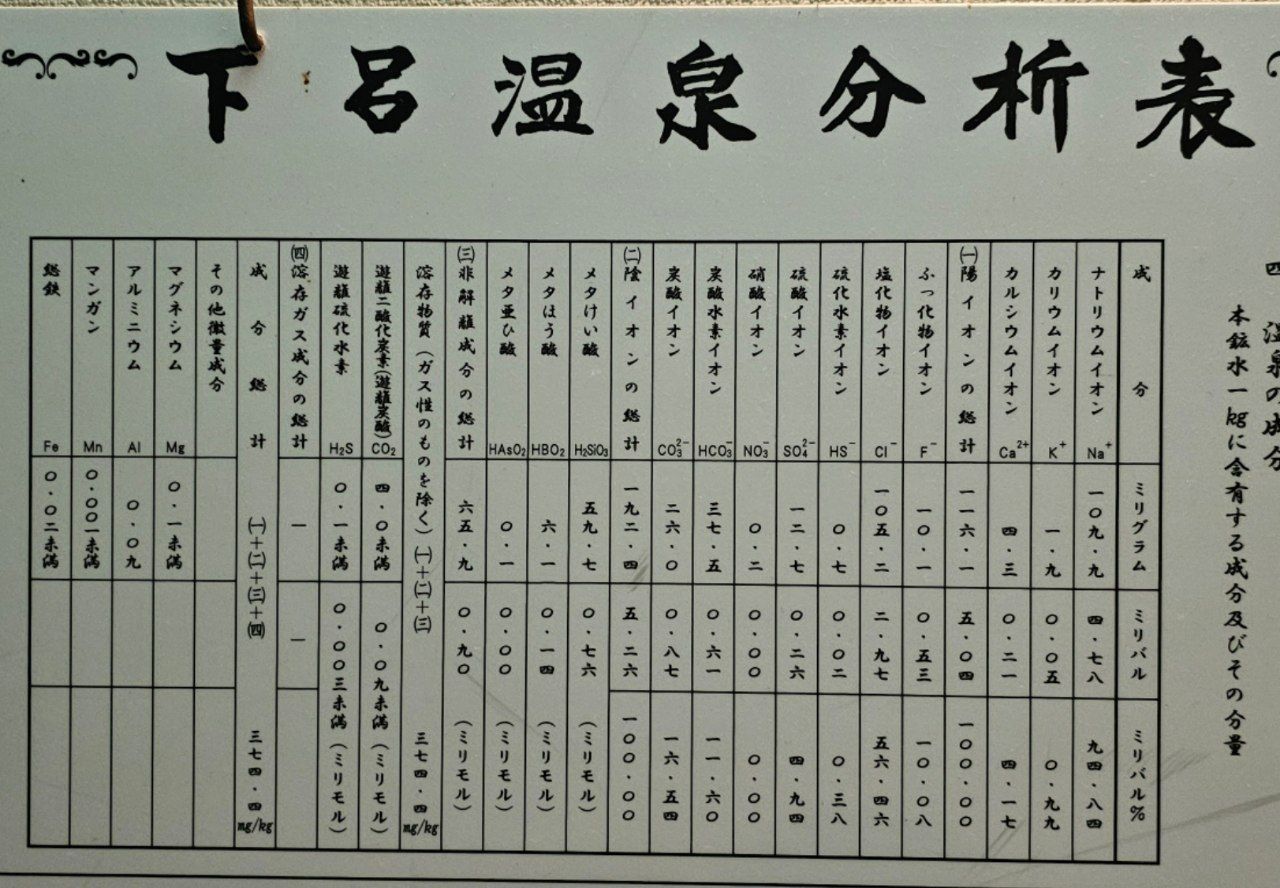 下呂温泉分析表
四 温泉の成分
本鉱水一kgに含有する成分及びその分量
成分 ミリグラム ミリバル ミリバル%
ナトリウムイオン Na⁺ 一〇九・九 四・七八 九四・八四
カリウムイオン K⁺ 一・九 〇・〇五 〇・九九
カルシウムイオン Ca²⁺ 四・三 〇・二一 四・一七
㈠陽イオンの総計 一一六・一 五・〇四 一〇〇・〇〇
ふっ化物イオン F⁻ 一〇・一 〇・五三 一〇・〇八
塩化物イオン Cl⁻ 一〇五・二 二・九七 五六・四六
硫化水素イオン HS⁻ 〇・七 〇・〇二 〇・三八
硫酸イオン SO₄²⁻ 一二・七 〇・二六 四・九四
硝酸イオン NO₃⁻ 〇・二 〇・〇〇 〇・〇〇
炭酸水素イオン HCO₃⁻ 三七・五 〇・六一 一一・六〇
炭酸イオン CO₃²⁻ 二六・〇 〇・八七 一六・五四
㈡陰イオンの総計 一九二・四 五・二六 一〇〇・〇〇
メタけい酸 H₂SiO₃ 五九・七 〇・七六 (ミリモル)
メタほう酸 HBO₂ 六・一 〇・一四 (ミリモル)
メタ亜ひ酸 HAsO₂ 〇・一 〇・〇〇 (ミリモル)
㈢非解離成分の総計 六五・九 〇・九〇 (ミリモル)
溶存物質(ガス性のものを除く)㈠+㈡+㈢ 三七四・四mg/kg
遊離二酸化炭素(遊離炭酸) CO₂ 四・〇未満 〇・〇九未満(ミリモル)
遊離硫化水素 H₂S 〇・一未満 〇・〇〇三未満(ミリモル)
㈣溶存ガス成分の総計 — —
成分総計 ㈠+㈡+㈢+㈣ 三七四・四mg/kg
その他微量成分
マグネシウム Mg 〇・一未満
アルミニウム Al 〇・〇九
マンガン Mn 〇・〇〇一未満
総鉄 Fe 〇・〇二未満